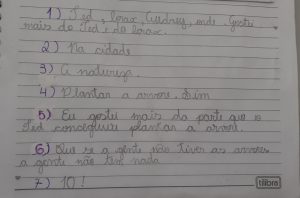 1) Ted, lorax, Audrey, onde. Gostei
mais do Ted e do lorax.
2) Na cidade
3) A natureza.
4) Plantar a arvore. Sim
5) Eu gostei mais da parte que o
Ted conseguiu plantar a arvore.
6) Que se a gente não tiver as arvores
a gente não tem nada
7) 10!
tilibra